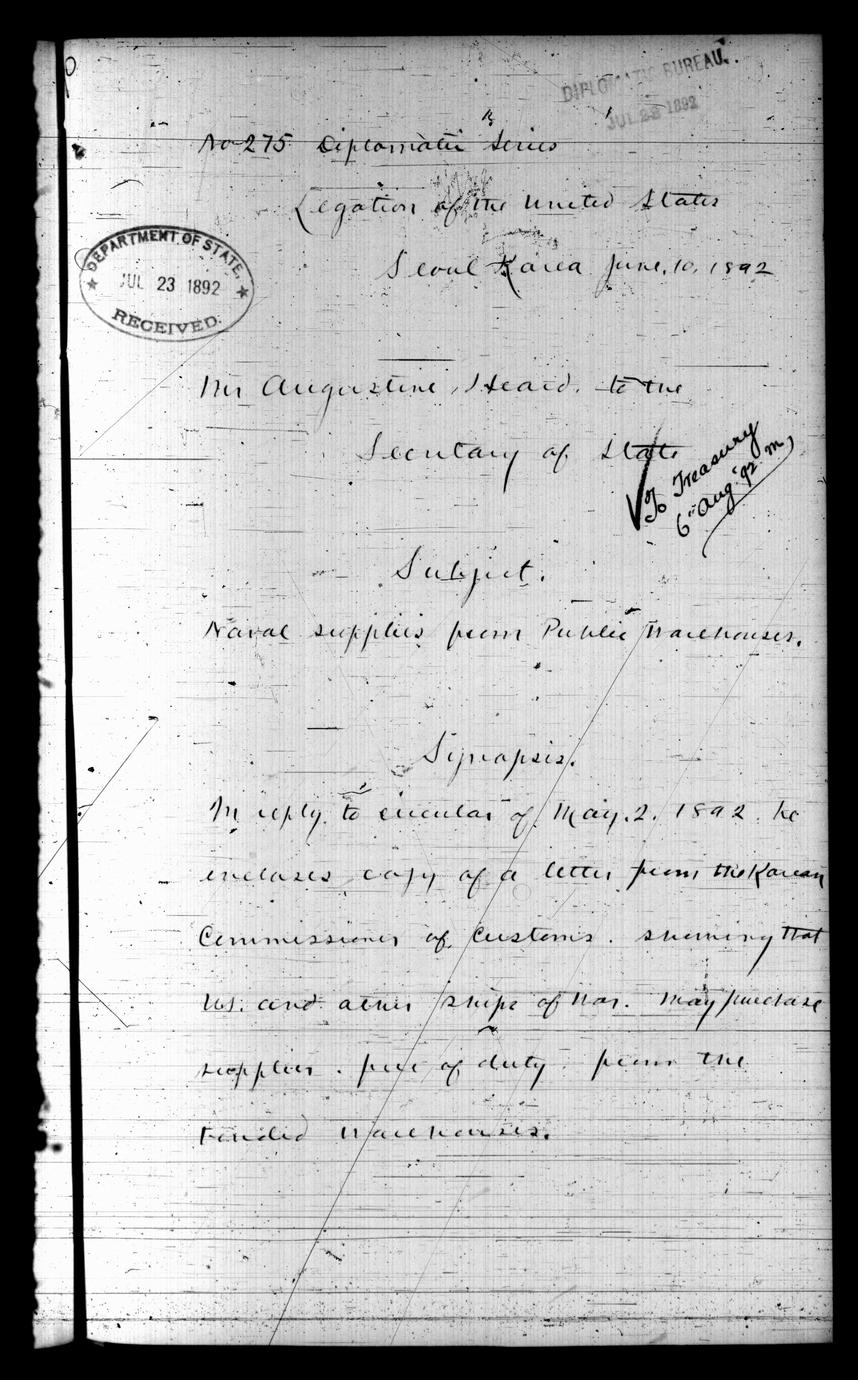 DIPLOMATIC BUREAU.
JUL 23 1892
No 275 Diplomatic Series
Legation of the United States
Seoul Korea June. 10. 1892
DEPARTMENT OF STATE.
JUL 23 1892
RECEIVED.
Mr Augustine Heard. to the
Secretary of State
To Treasury
6" Aug '92
Subject.
Naval supplies from Public Warehouses.
Synopsis.
In reply to circular of May. 2. 1892 he
encloses copy of a letter from the Korean
Commissioner of Customs. showing that
U.S. and other ships of War. may purchase
supplies. free of duty from the
bonded Warehouses.